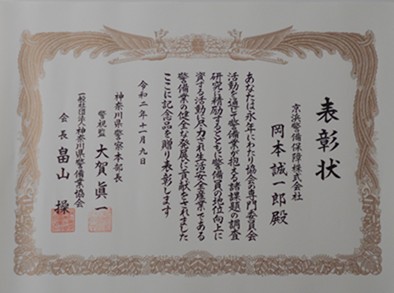 表彰状
京浜警備保障株式会社
岡本誠一郎殿
あなたは永年にわたり協会の専門委員会
活動を通じて警備業が抱える諸課題の調査
研究に精励するとともに警備員の地位向上に
資する活動に尽力され生活安全産業である
警備業の健全な発展に貢献されました
ここに記念品を贈り表彰します
令和二年十一月九日
神奈川県警察本部長
警視監 大賀眞一
一般社団法人神奈川県警備業協会
会長 畠山操